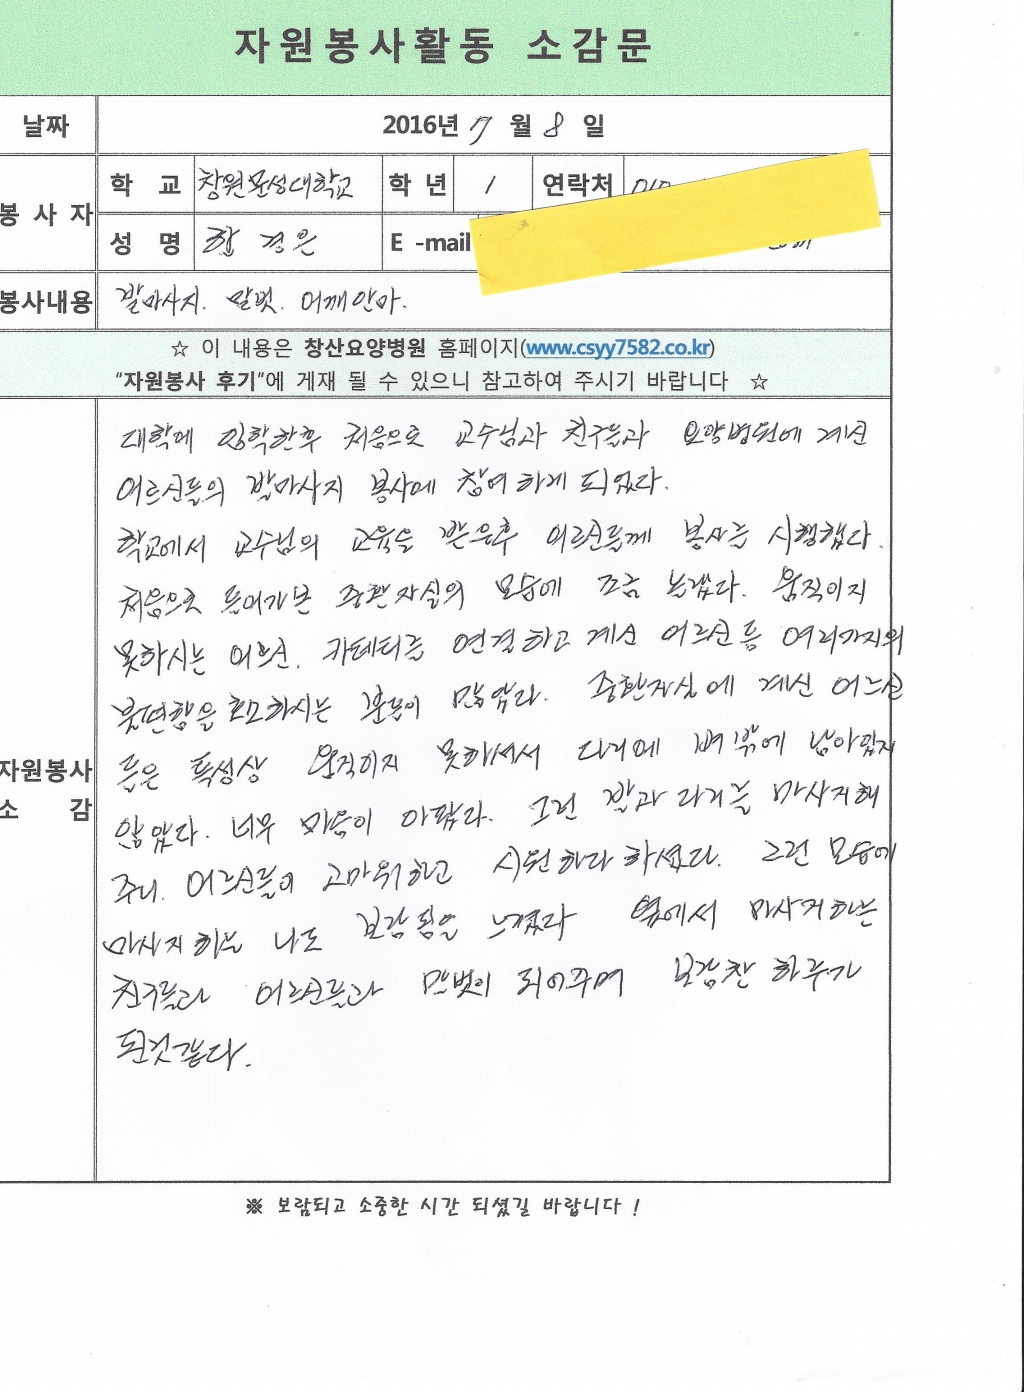 자원봉사활동 소감문
날짜 2016년 7 월 8 일
봉 사 자
학 교 창원문성대학교 학 년 1 연락처 010
성 명 함 경은 E -mail
봉사내용 발마사지. 말벗. 어깨안마.
☆ 이 내용은 창산요양병원 홈페이지(www.csyy7582.co.kr)
"자원봉사 후기"에 게재 될 수 있으니 참고하여 주시기 바랍니다 ☆
자원봉사
소 감
대학에 입학한후 처음으로 교수님과 친구들과 요양병원에 계신
어르신들의 발마사지 봉사에 참여하게 되었다.
학교에서 교수님의 교육을 받은후 어르신들께 봉사를 시행했다.
처음으로 들어가본 중환자실의 모습에 조금 놀랐다. 움직이지
못하시는 어르신. 카테터를 연결하고 계신 어르신 등 여러가지의
불편함을 호소하시는 분들이 많았다. 중환자실에 계신 어르신
들은 특성상 움직이지 못하셔서 다리에 뼈밖에 남아있지
않았다. 너무 마음이 아팠다. 그런 발과 다리를 마사지해
주니. 어르신들이 고마워하고 시원하다 하셨다. 그런 모습에
마사지 하는 나도 보람됨을 느꼈다 옆에서 마사지하는
친구들과 어르신들과 말벗이 되어주며 보람찬 하루가
된것같다.
※ 보람되고 소중한 시간 되셨길 바랍니다 !